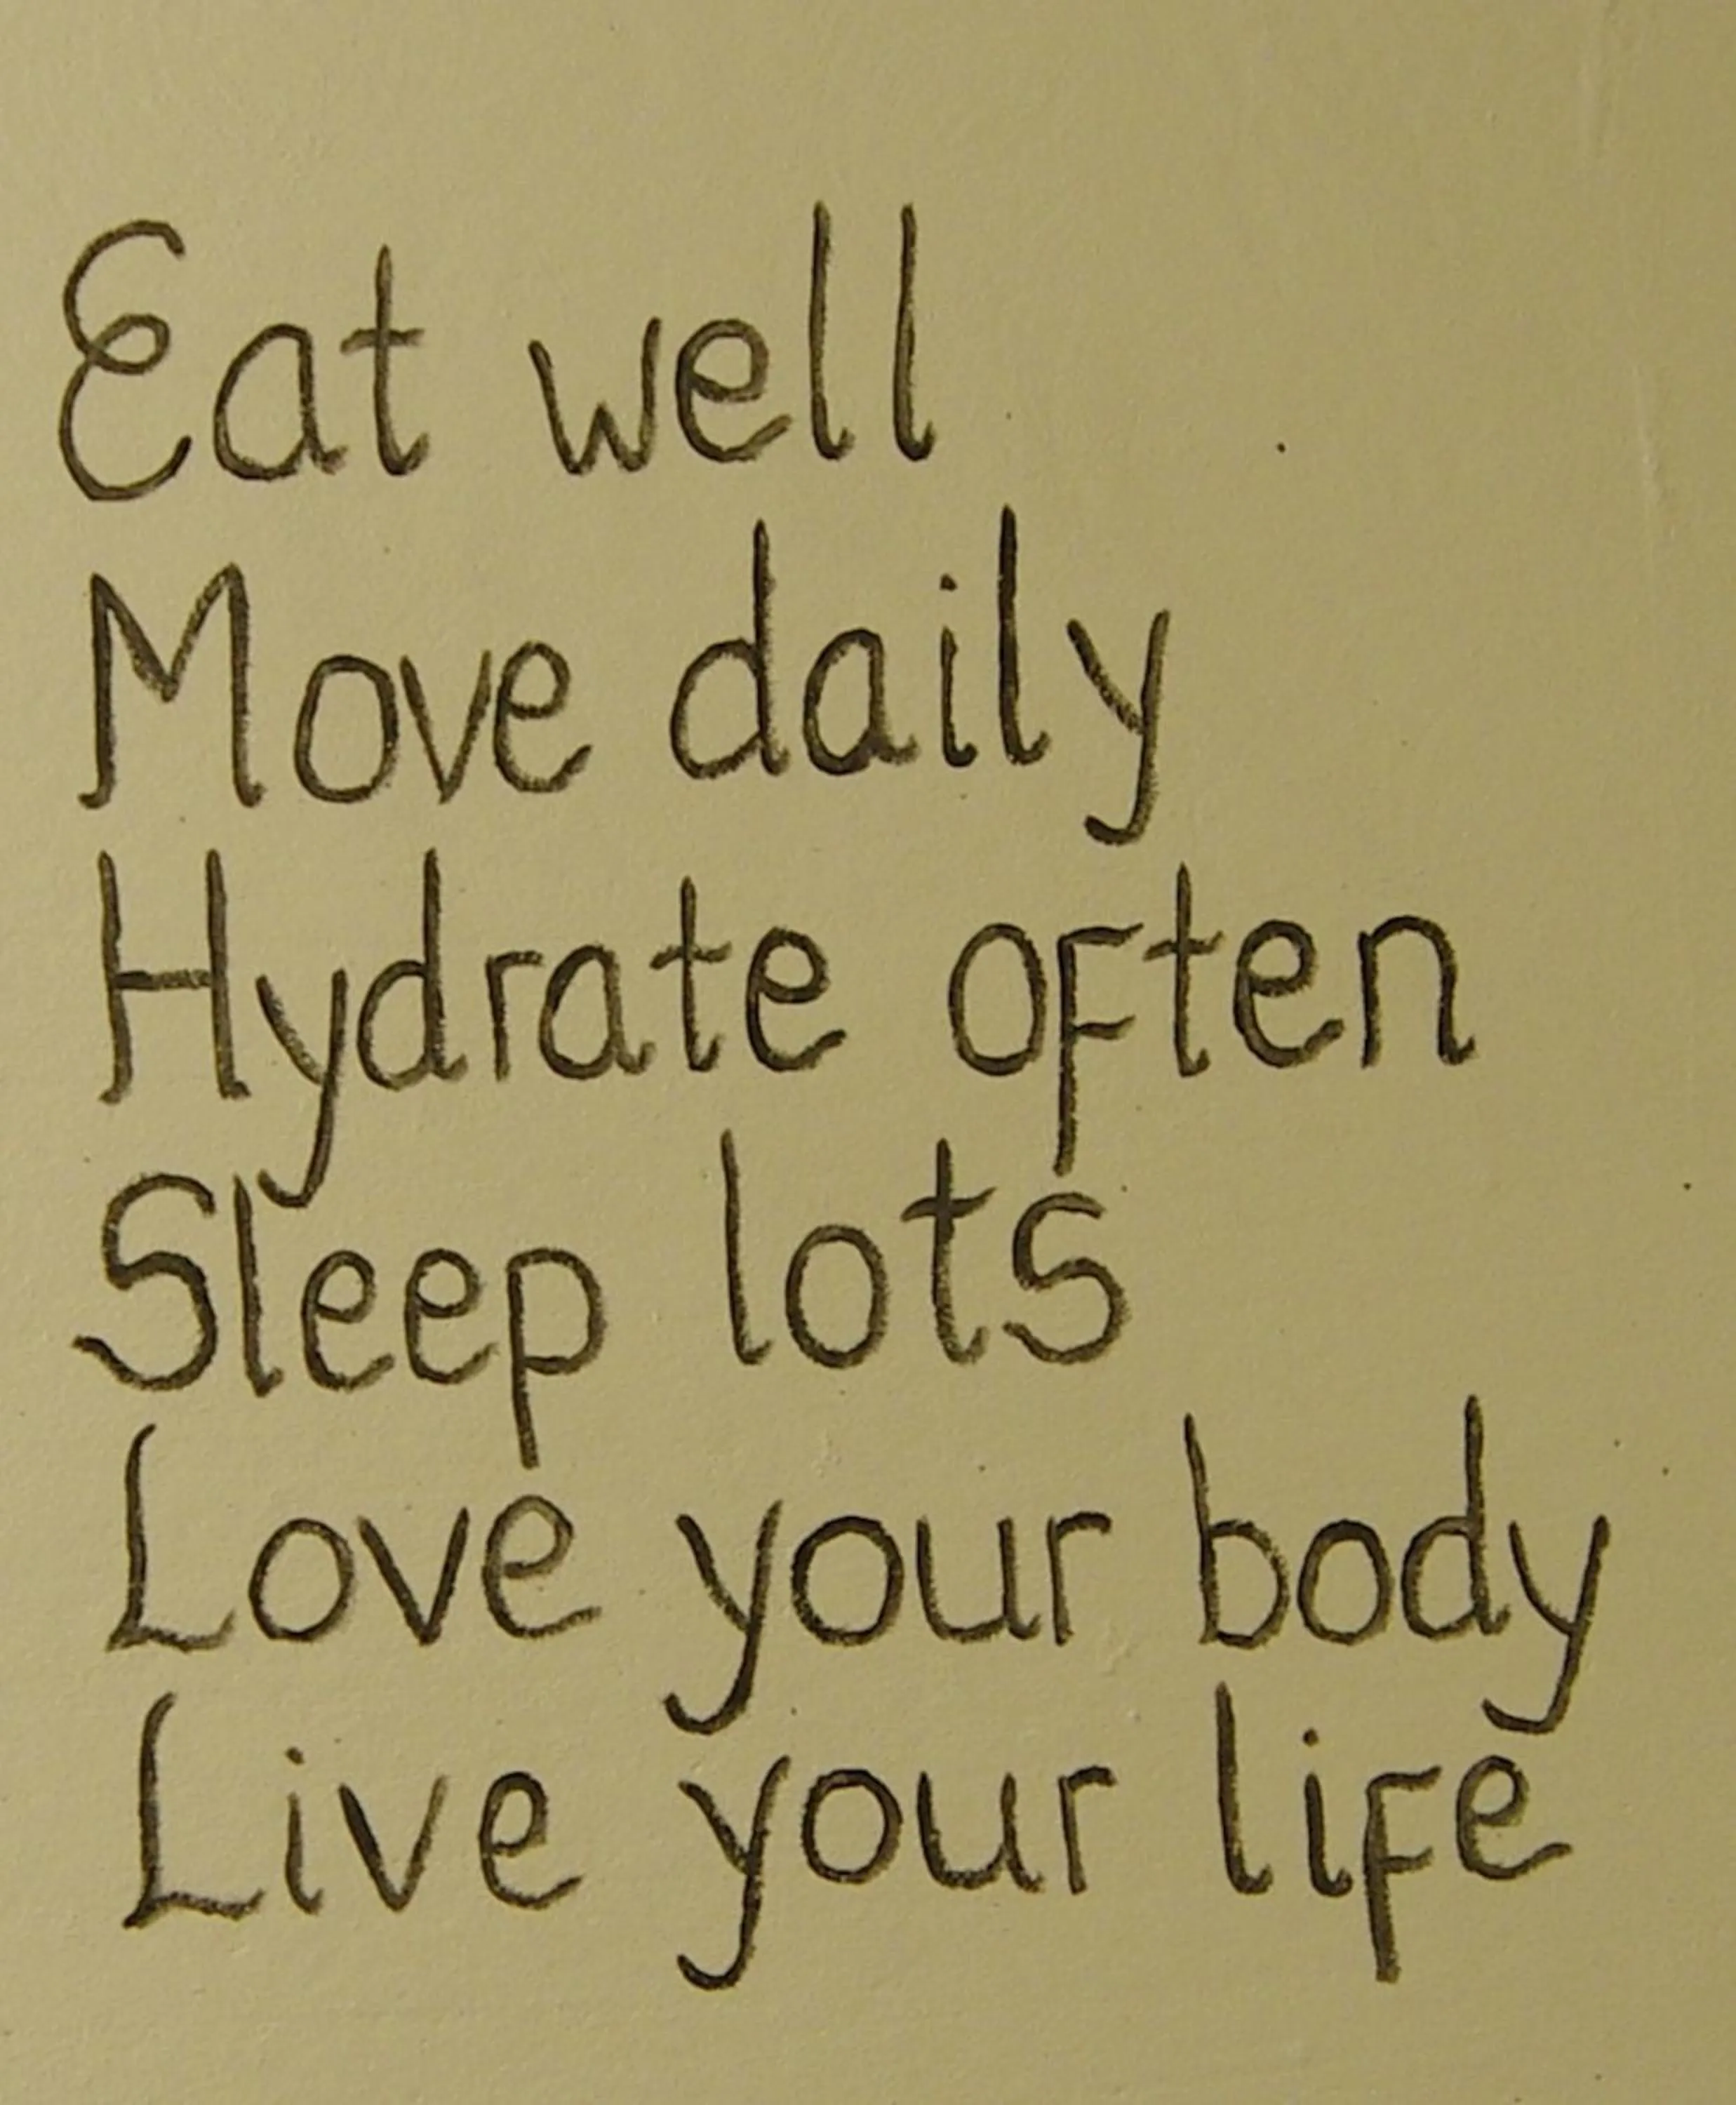 Eat well
Move daily
Hydrate often
Sleep lots
Love your body
Live your life